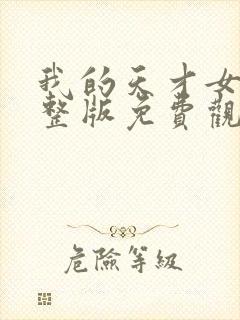 我的天才女
整版免費觀
危險等級